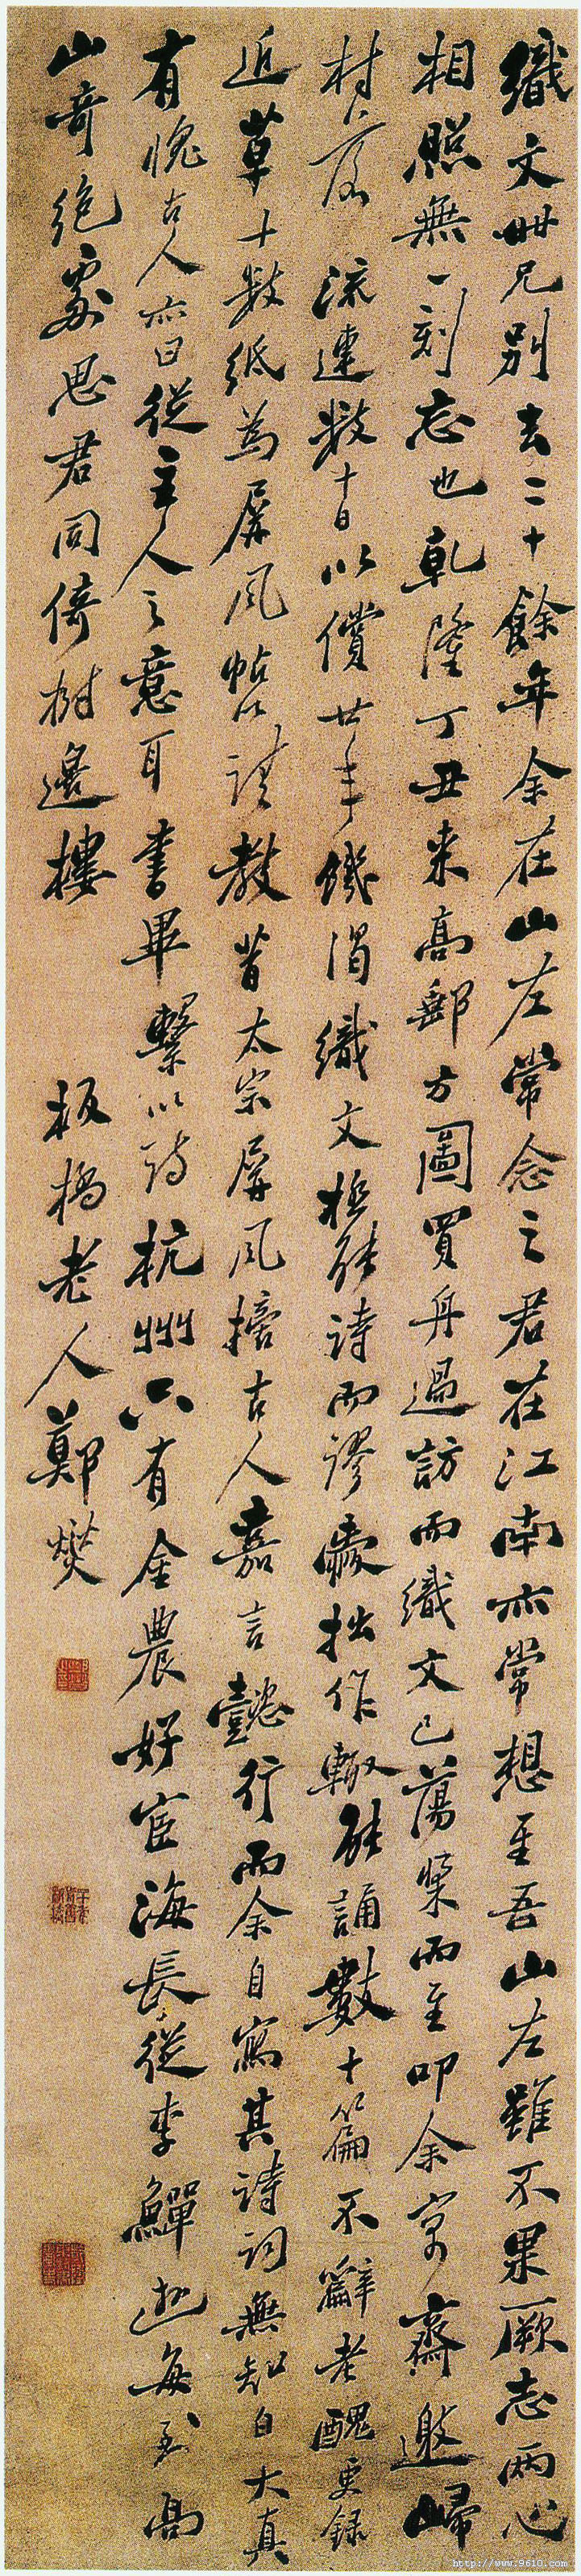 織文世兄別去二十餘年余在山左常念之君在江南亦常想至吾山左雖不果厥志兩心
相照無一刻忘也乾隆丁丑來高郵方圖買舟過訪而織文已蕩槳而至叩余寓齋邀歸
村落流連數十日以償廿年饑渴織文極能詩而謬愛拙作輒能誦數十篇不辭老醜更録
近草十數紙為屏風帖以請教昔太宗屏風撦古人嘉言懿行而余自寫其詩詞無知自大真
有愧古人亦曰從主人之意耳書畢繫以詩杭州只有金農好宦海長從李鱓遊每到高
山奇絕處思君同倚樹邊樓
板橋老人鄭燮
http://www.9610.com